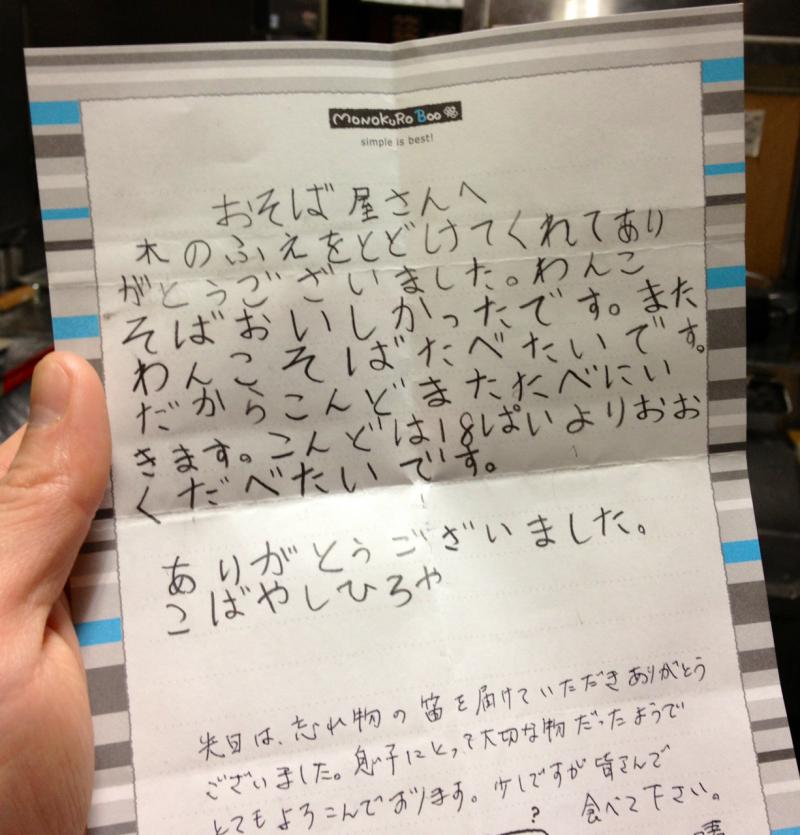 MONOKURO BOO
simple is best!
おそば屋さんへ
木のふえをとどけてくれてあり
がとうございました。わんこ
そばおいしかったです。また
わんこそばたべたいです。
だからこんどまたたべにい
きます。こんどは18ぱいよりおお
くだべたいです。
ありがとうございました。
こばやしひろや
先日は、忘れ物の笛を届けていただきありがとう
ございました。息子にとって大切な物だったようで
とてもよろこんでおります。少しですが皆さんで
食べて下さい。
?